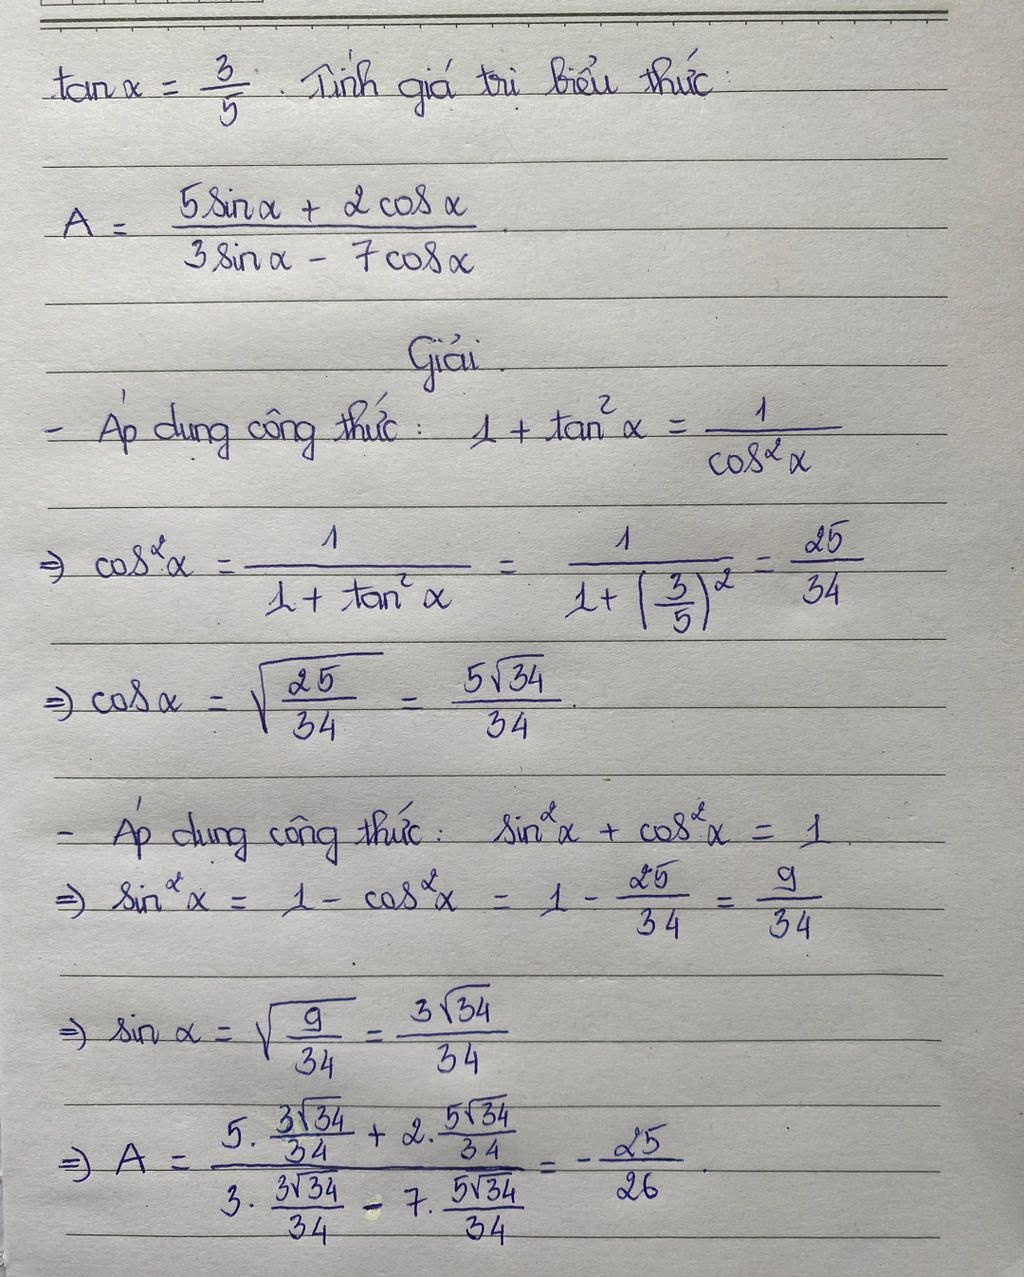 tan α = 3/5. Tính giá trị biểu thức:
A = (5 sin α + 2 cos α)/(3 sin α - 7 cos α).
Giải.
- Áp dụng công thức: 1 + tan² α = 1/(cos² α)
⇒ cos² α = 1/(1 + tan² α) = 1/(1 + (3/5)²) = 25/34
⇒ cos α = √(25/34) = (5√34)/34.
- Áp dụng công thức: sin² α + cos² α = 1.
⇒ sin² α = 1 - cos² α = 1 - 25/34 = 9/34
⇒ sin α = √(9/34) = (3√34)/34
⇒ A = (5. (3√34)/34 + 2. (5√34)/34)/(3. (3√34)/34 - 7. (5√34)/34) = - 25/26.